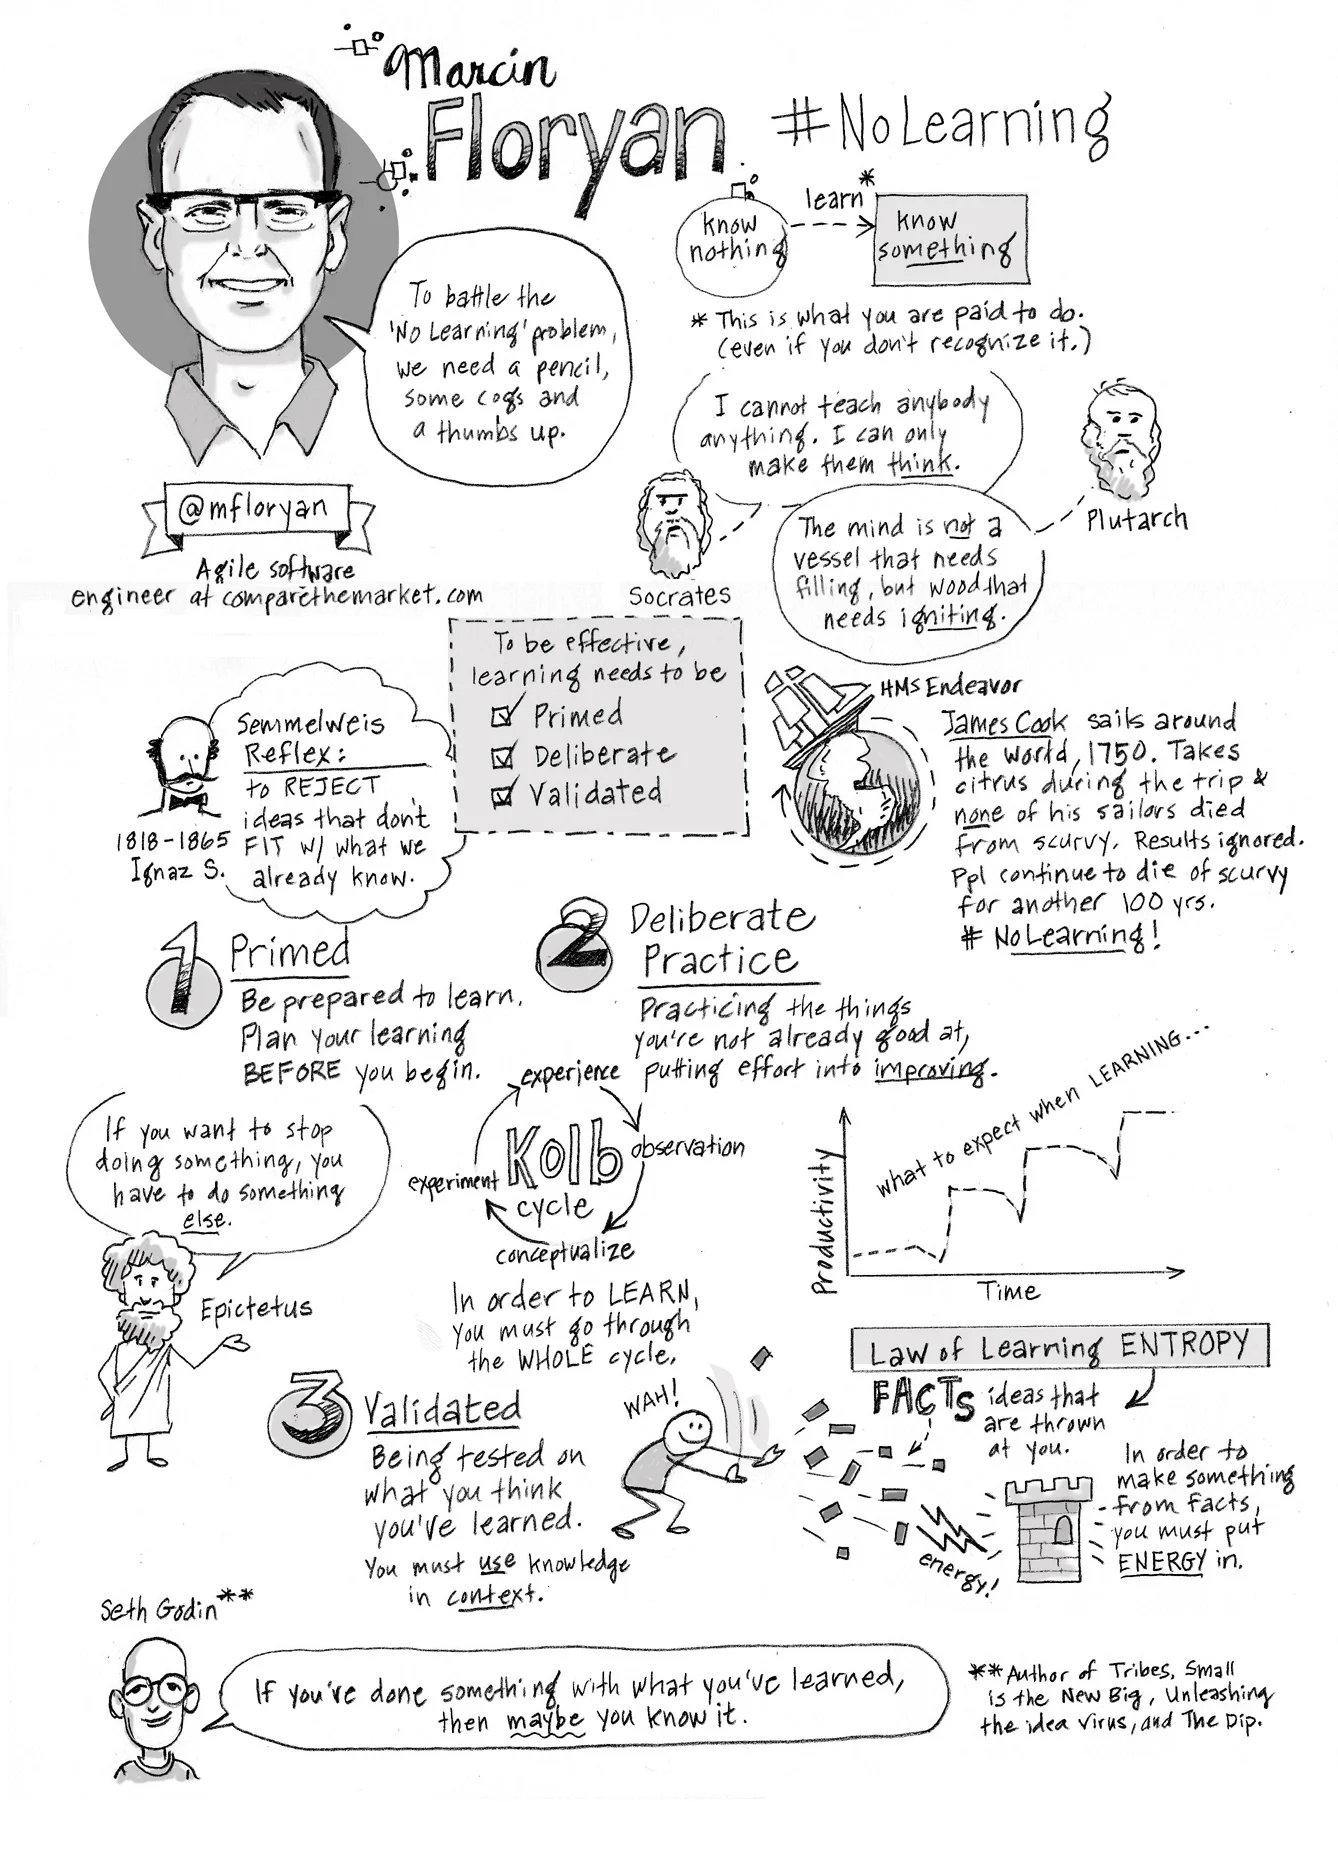 Marcin
Floryan
#NoLearning
know
nothing
learn*
know
something
* This is what you are paid to do.
(even if you don't recognize it.)
To battle the
'No Learning' problem,
we need a pencil,
some cogs and
a thumbs up.
@mfloryan
Agile software
engineer at comparethemarket.com
I cannot teach anybody
anything. I can only
make them think.
Socrates
Plutarch
The mind is not a
vessel that needs
filling, but wood that
needs igniting.
To be effective,
learning needs to be
Primed
Deliberate
Validated
Semmelweis
Reflex:
to REJECT
ideas that don't
FIT w/ what we
already know.
1818-1865
Ignaz S.
HMS Endeavor
James Cook sails around
the world, 1750. Takes
citrus during the trip &
none of his sailors died
from scurvy. Results ignored.
Ppl continue to die of scurvy
for another 100 yrs.
# NoLearning!
1
Primed
Be prepared to learn.
Plan your learning
BEFORE you begin.
2
Deliberate
Practice
Practicing the things
you're not already good at,
putting effort into improving.
If you want to stop
doing something, you
have to do something
else.
Epictetus
experience
observation
conceptualize
experiment
Kolb
cycle
In order to LEARN,
you must go through
the WHOLE cycle.
what to expect when LEARNING...
Productivity
Time
3
Validated
Being tested on
what you think
you've learned.
You must use knowledge
in context.
WAH!
Law of Learning ENTROPY
FACTs
ideas that
are thrown
at you.
energy!
In order to
make something
from facts,
you must put
ENERGY in.
Seth Godin**
If you've done something with what you've learned,
then maybe you know it.
**Author of Tribes, Small
is the New Big, Unleashing
the idea virus, and The Dip.